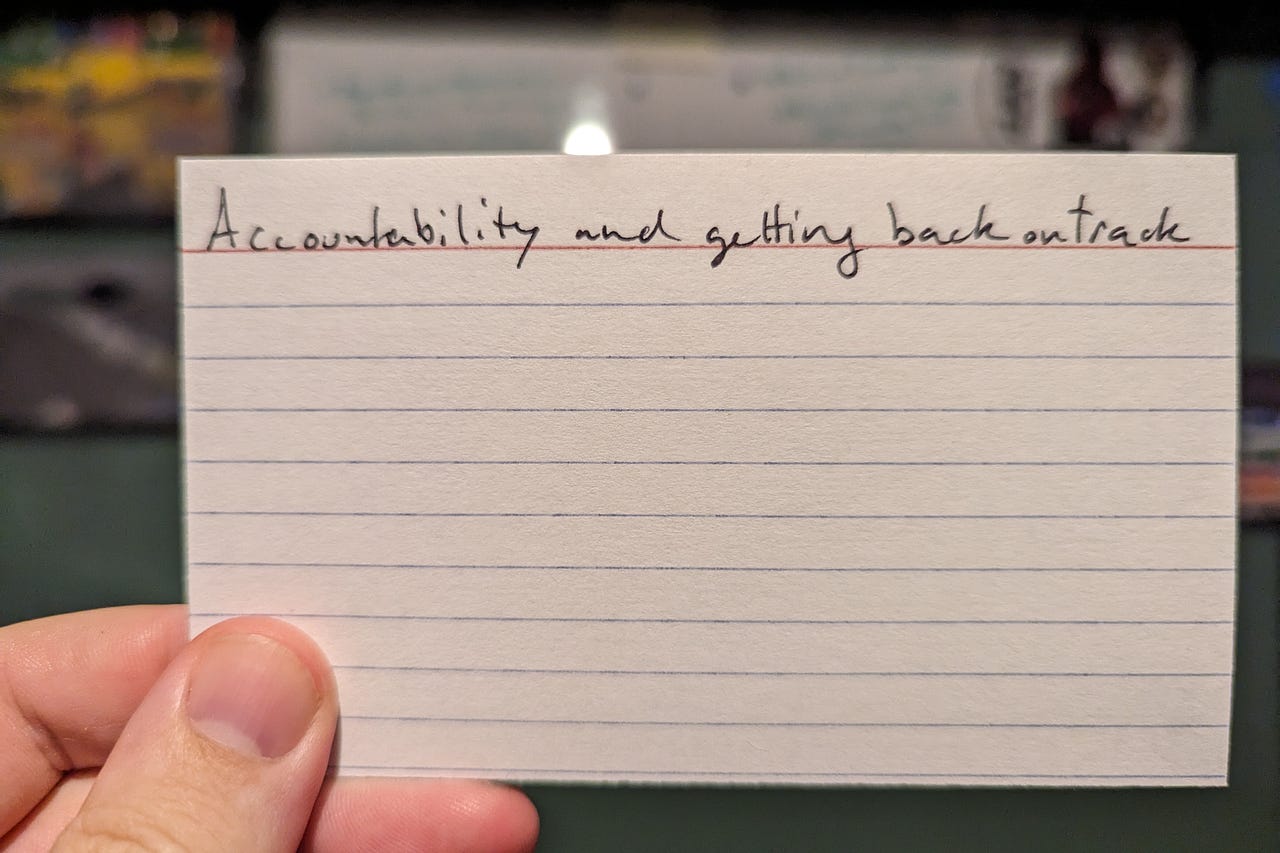 Accountability and getting back on track